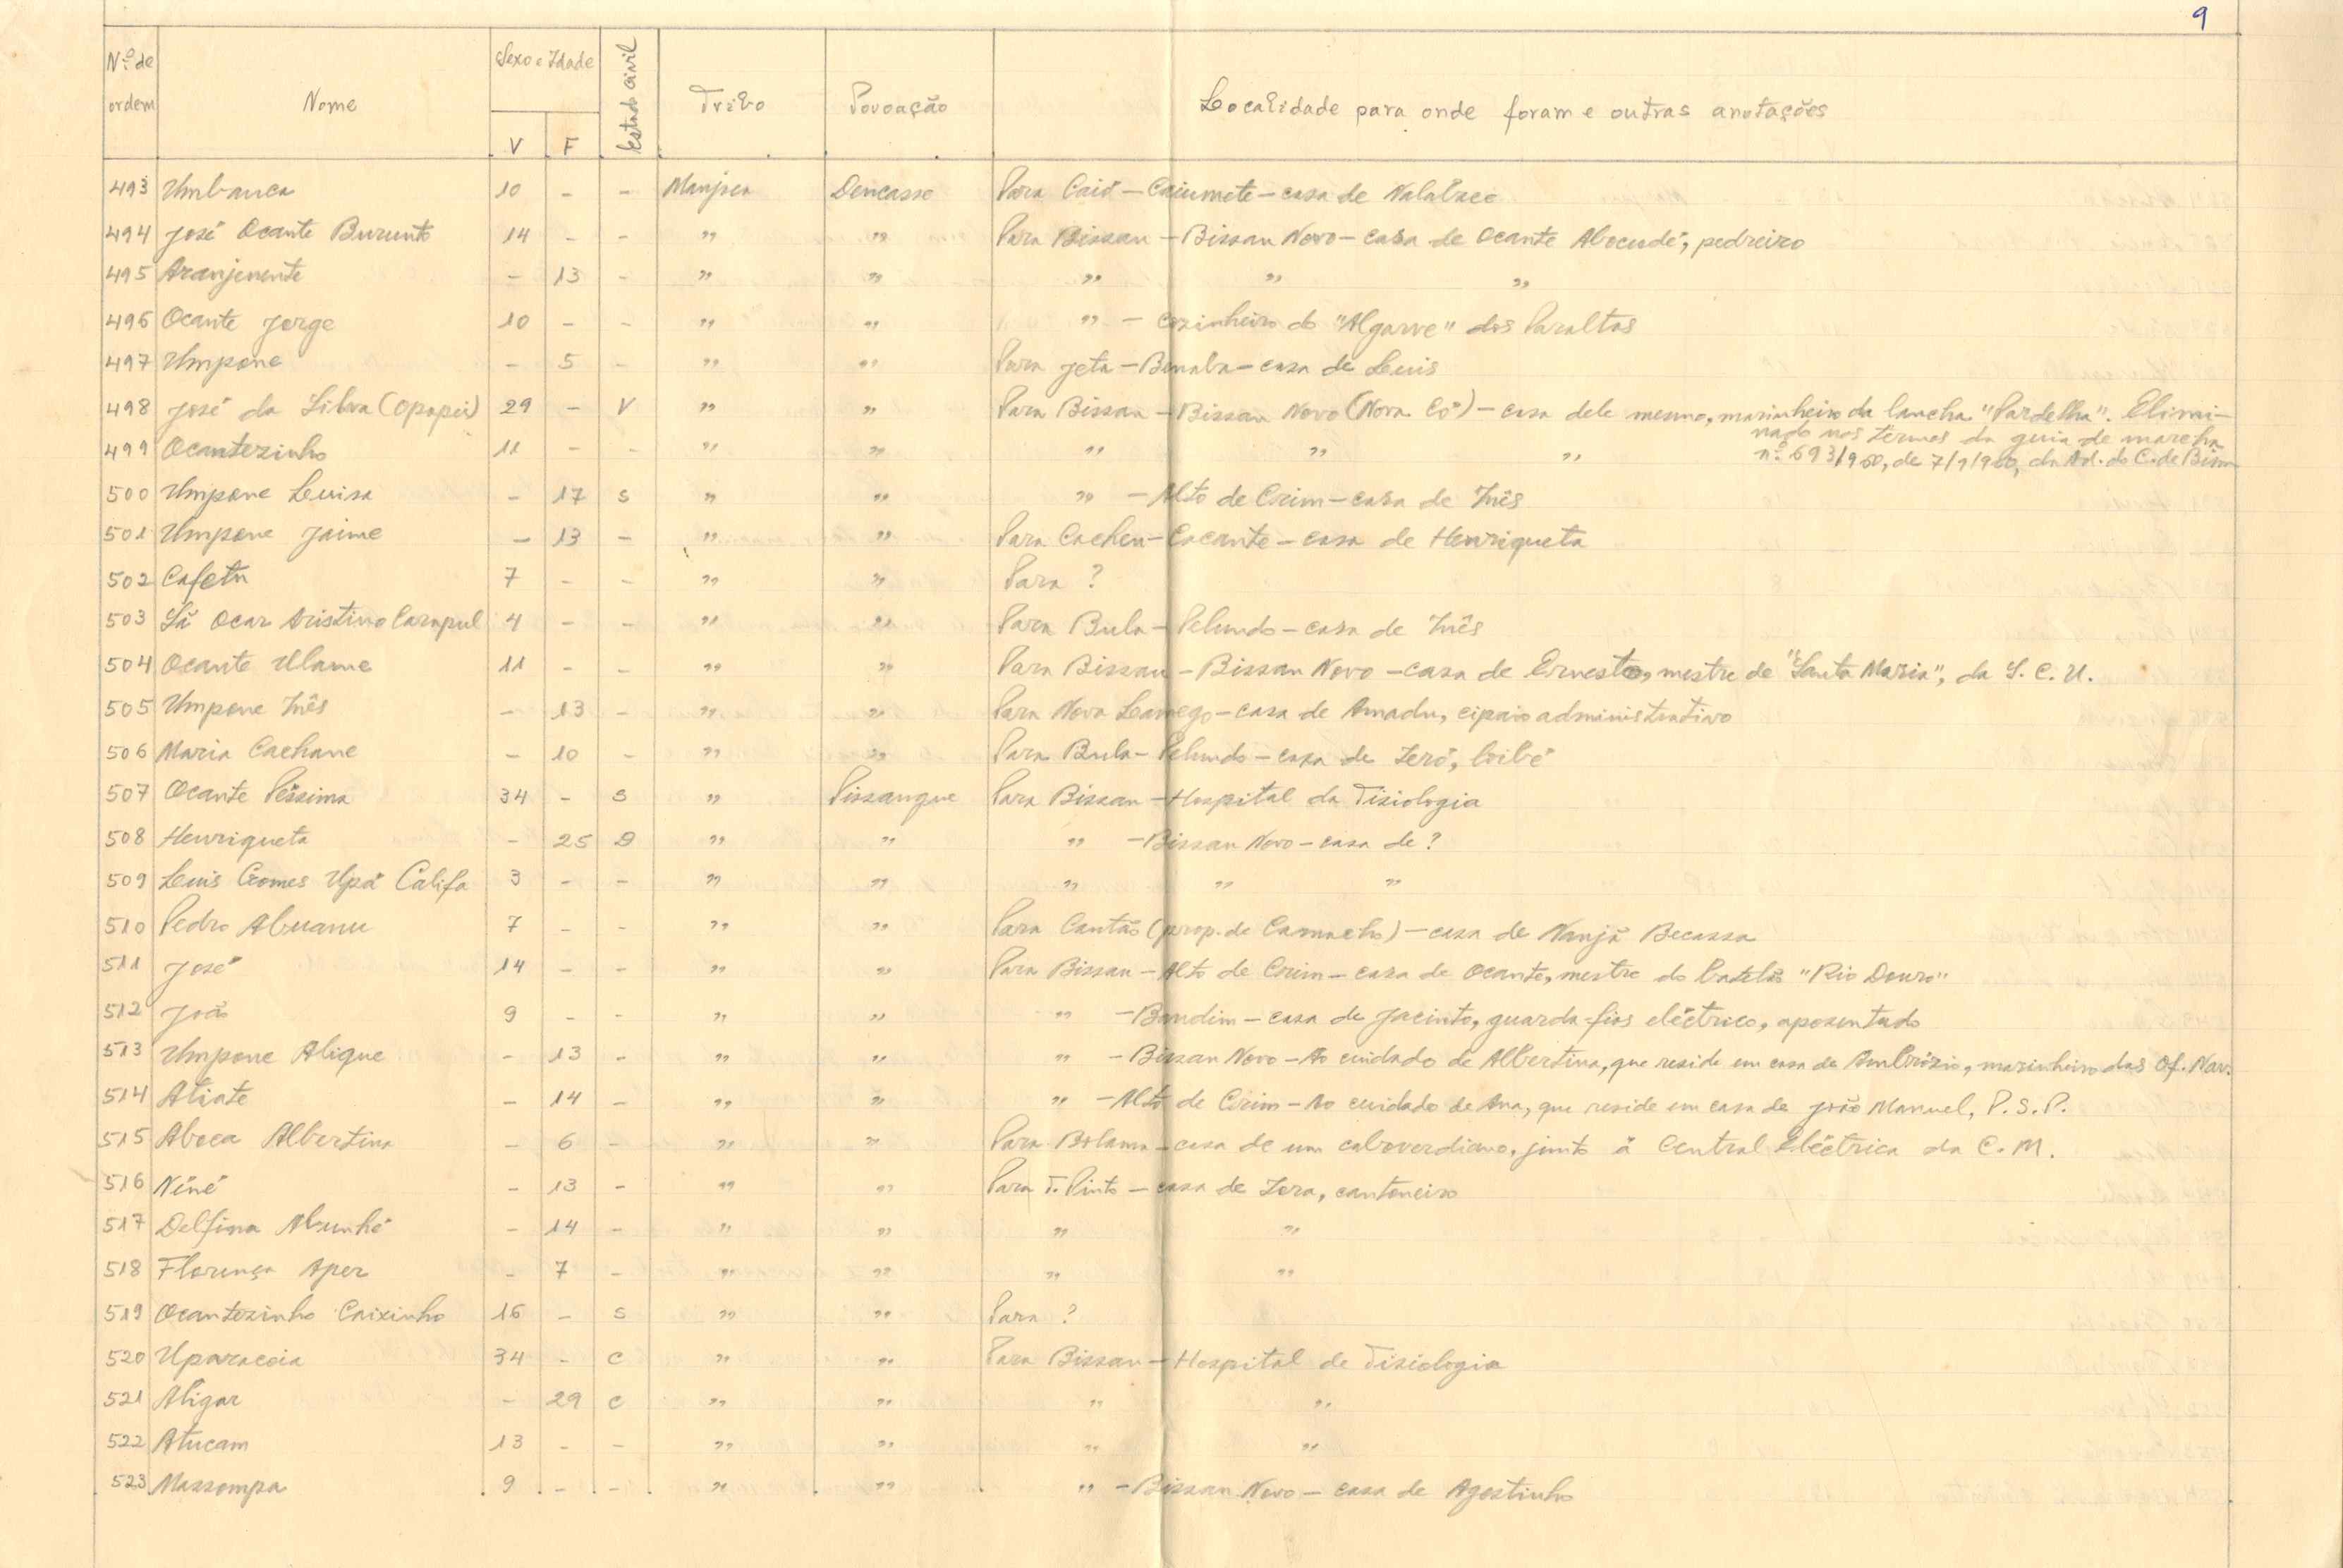 9
Nº de ordem Nome Sexo e Idade V F Estado civil Tribo Povoação Localidade para onde foram e outras anotações
493 Umbanca 10 - - Manjaca Dencasse Para Caió - Caiumete - casa de
494 José Ocante Burunto 14 - - " " Para Bissau - Bissau Novo - casa de Ocante Abocudé, pedreiro
495 Aranjenente - 13 - " " " " "
496 Ocante Jorge 10 - - " " " - cozinheiro do "Algarve" dos Paraltas
497 Umpane - 5 - " " Para Jeta - - casa de Luis
498 José da Silva (Opapii) 29 - V " " Para Bissau - Bissau Novo (Nova Có) - casa dele mesmo, marinheiro da lancha "Pardelha". Elimi-
nado nos termos da guia de marcha
499 Ocantezinho 11 - - " " " " " nº 693/960, de 7/9/960, da Ad. do C. de Bissau
500 Umpane Luisa - 17 S " " " - Alto de Crim - casa de Inês
501 Umpane Jaime - 13 - " " Para Cacheu - Cacante - casa de Henriqueta
502 Cafetu 7 - - " " Para ?
503 Sá Ocar Aristino Carapul 4 - - " " Para Bula - Pelundo - casa de Inês
504 Ocante Ulame 11 - - " " Para Bissau - Bissau Novo - casa de Ernesto, mestre de "Santa Maria", da S. C. U.
505 Umpane Inês - 13 - " " Para Nova Lamego - casa de Amadu, cipaio administrativo
506 Maria Cachane - 10 - " " Para Bula - Pelundo - casa de Zeró,
507 Ocante Péssima 34 - S " Pissangue Para Bissau - Hospital da Tisiologia
508 Henriqueta - 25 D " " " - Bissau Novo - casa de ?
509 Luis Gomes Upá Califa 3 - - " " " " "
510 Pedro Abuanu 7 - - " " Para Cantão (prop. de Camacho) - casa de Nanjã Becassa
511 José 14 - - " " Para Bissau - Alto de Crim - casa de Ocante, mestre do batelão "Rio Douro"
512 João 9 - - " " " - Bandim - casa de Jacinto, guarda-fios eléctrico, aposentado
513 Umpane Alique - 13 - " " " - Bissau Novo - Ao cuidado de Albertina, que reside em casa de Ambrózio, marinheiro das Of. Nav.
514 Aliate - 14 - " " " - Alto de Crim - Ao cuidado de Ana, que reside em casa de João Manuel, P. S. P.
515 Aboca Albertina - 6 - " " Para Bolama - casa de um caboverdiano, junto à Central Eléctrica da C. M.
516 Néné - 13 - " " Para T. Pinto - casa de Zora, cantoneiro
517 Delfina Abunhé - 14 - " " " "
518 Florença Aper - 7 - " " " "
519 Ocantezinho Caixinho 16 - S " " Para ?
520 Uparacoia 34 - C " " Para Bissau - Hospital de Tisiologia
521 Aligar - 29 C " " " "
522 Atucam 13 - - " " " "
523 Massompa 9 - - " " " - Bissau Novo - casa de Agostinho